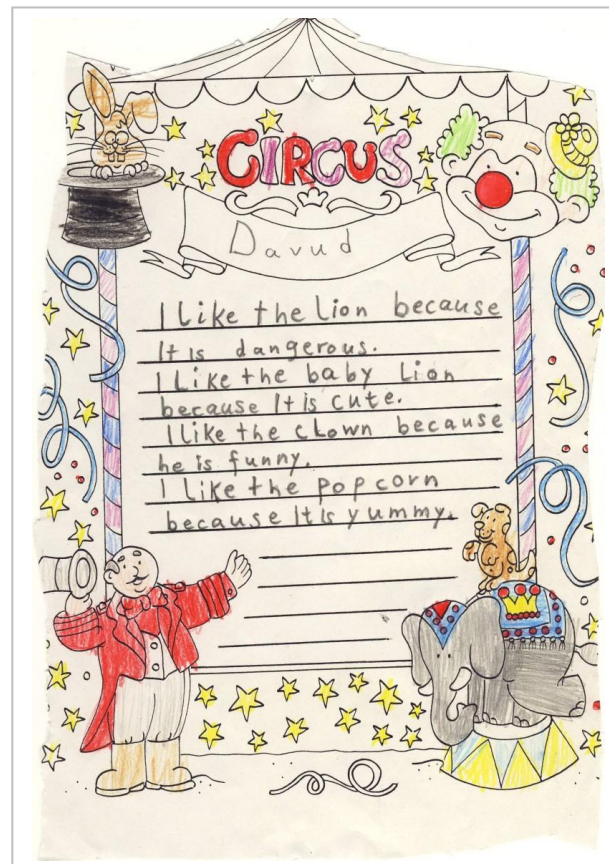 CIRCUS
Davud
I like the Lion because
It is dangerous.
I Like the baby Lion
because It is cute.
I like the clown because
he is funny.
I like the popcorn
because It is yummy.